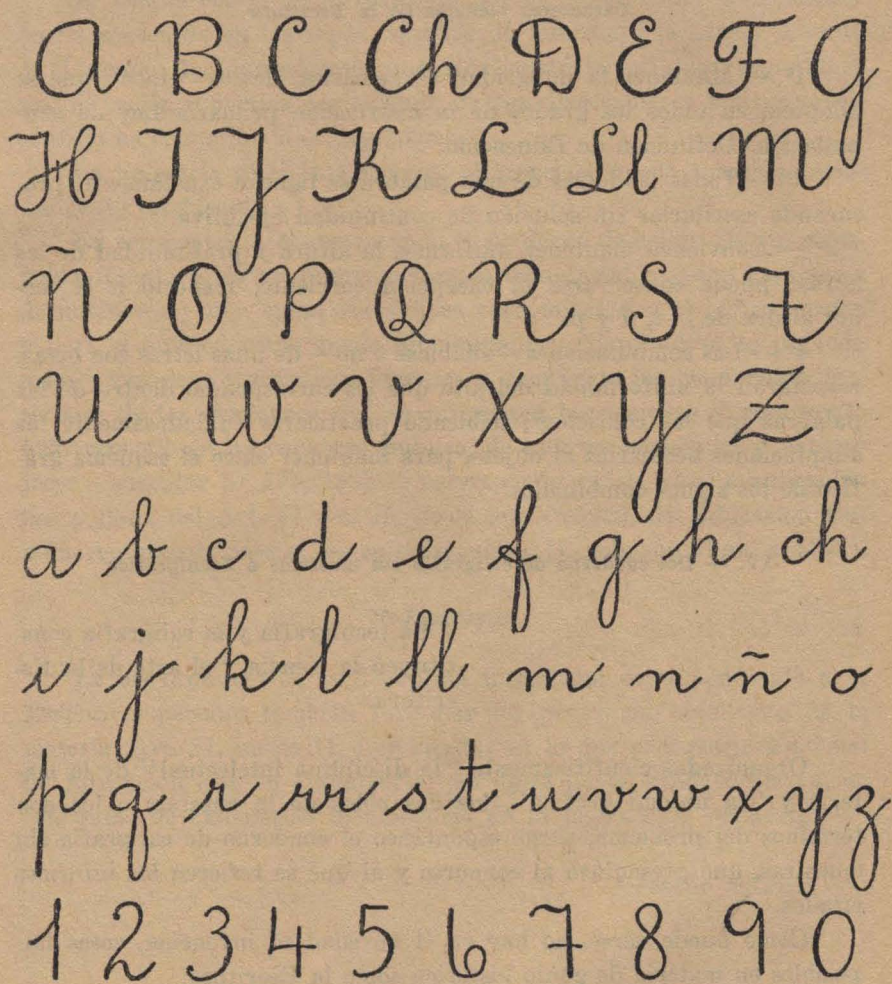 A B C Ch D E F G
H I J K L Ll M
Ñ O P Q R S T
U W V X Y Z
a b c d e f g h ch
i j k l ll m n ñ o
p q r rr s t u v w x y z
1 2 3 4 5 6 7 8 9 0